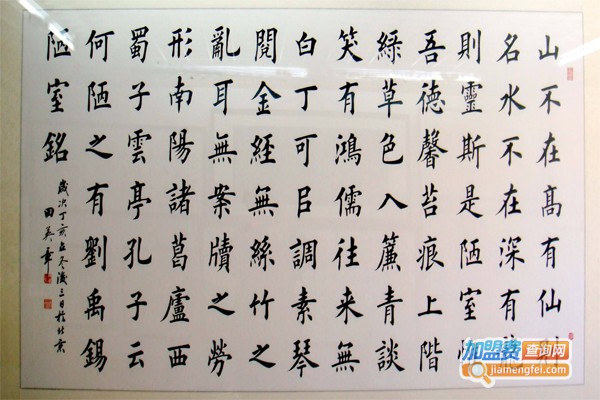 山不在高有仙
名水不在深有
則靈斯是陋室
吾德馨苔痕上階
綠草色入簾青談
笑有鴻儒往来無
白丁可㠯調素琴
閱金經無絲竹之
亂耳無案牘之勞
形南陽諸葛廬西
蜀子雲亭孔子云
何陋之有劉禹錫
陋室銘
歲次丁亥立冬後三日於北京
田英章
加盟费查询网
jiamengfei.com